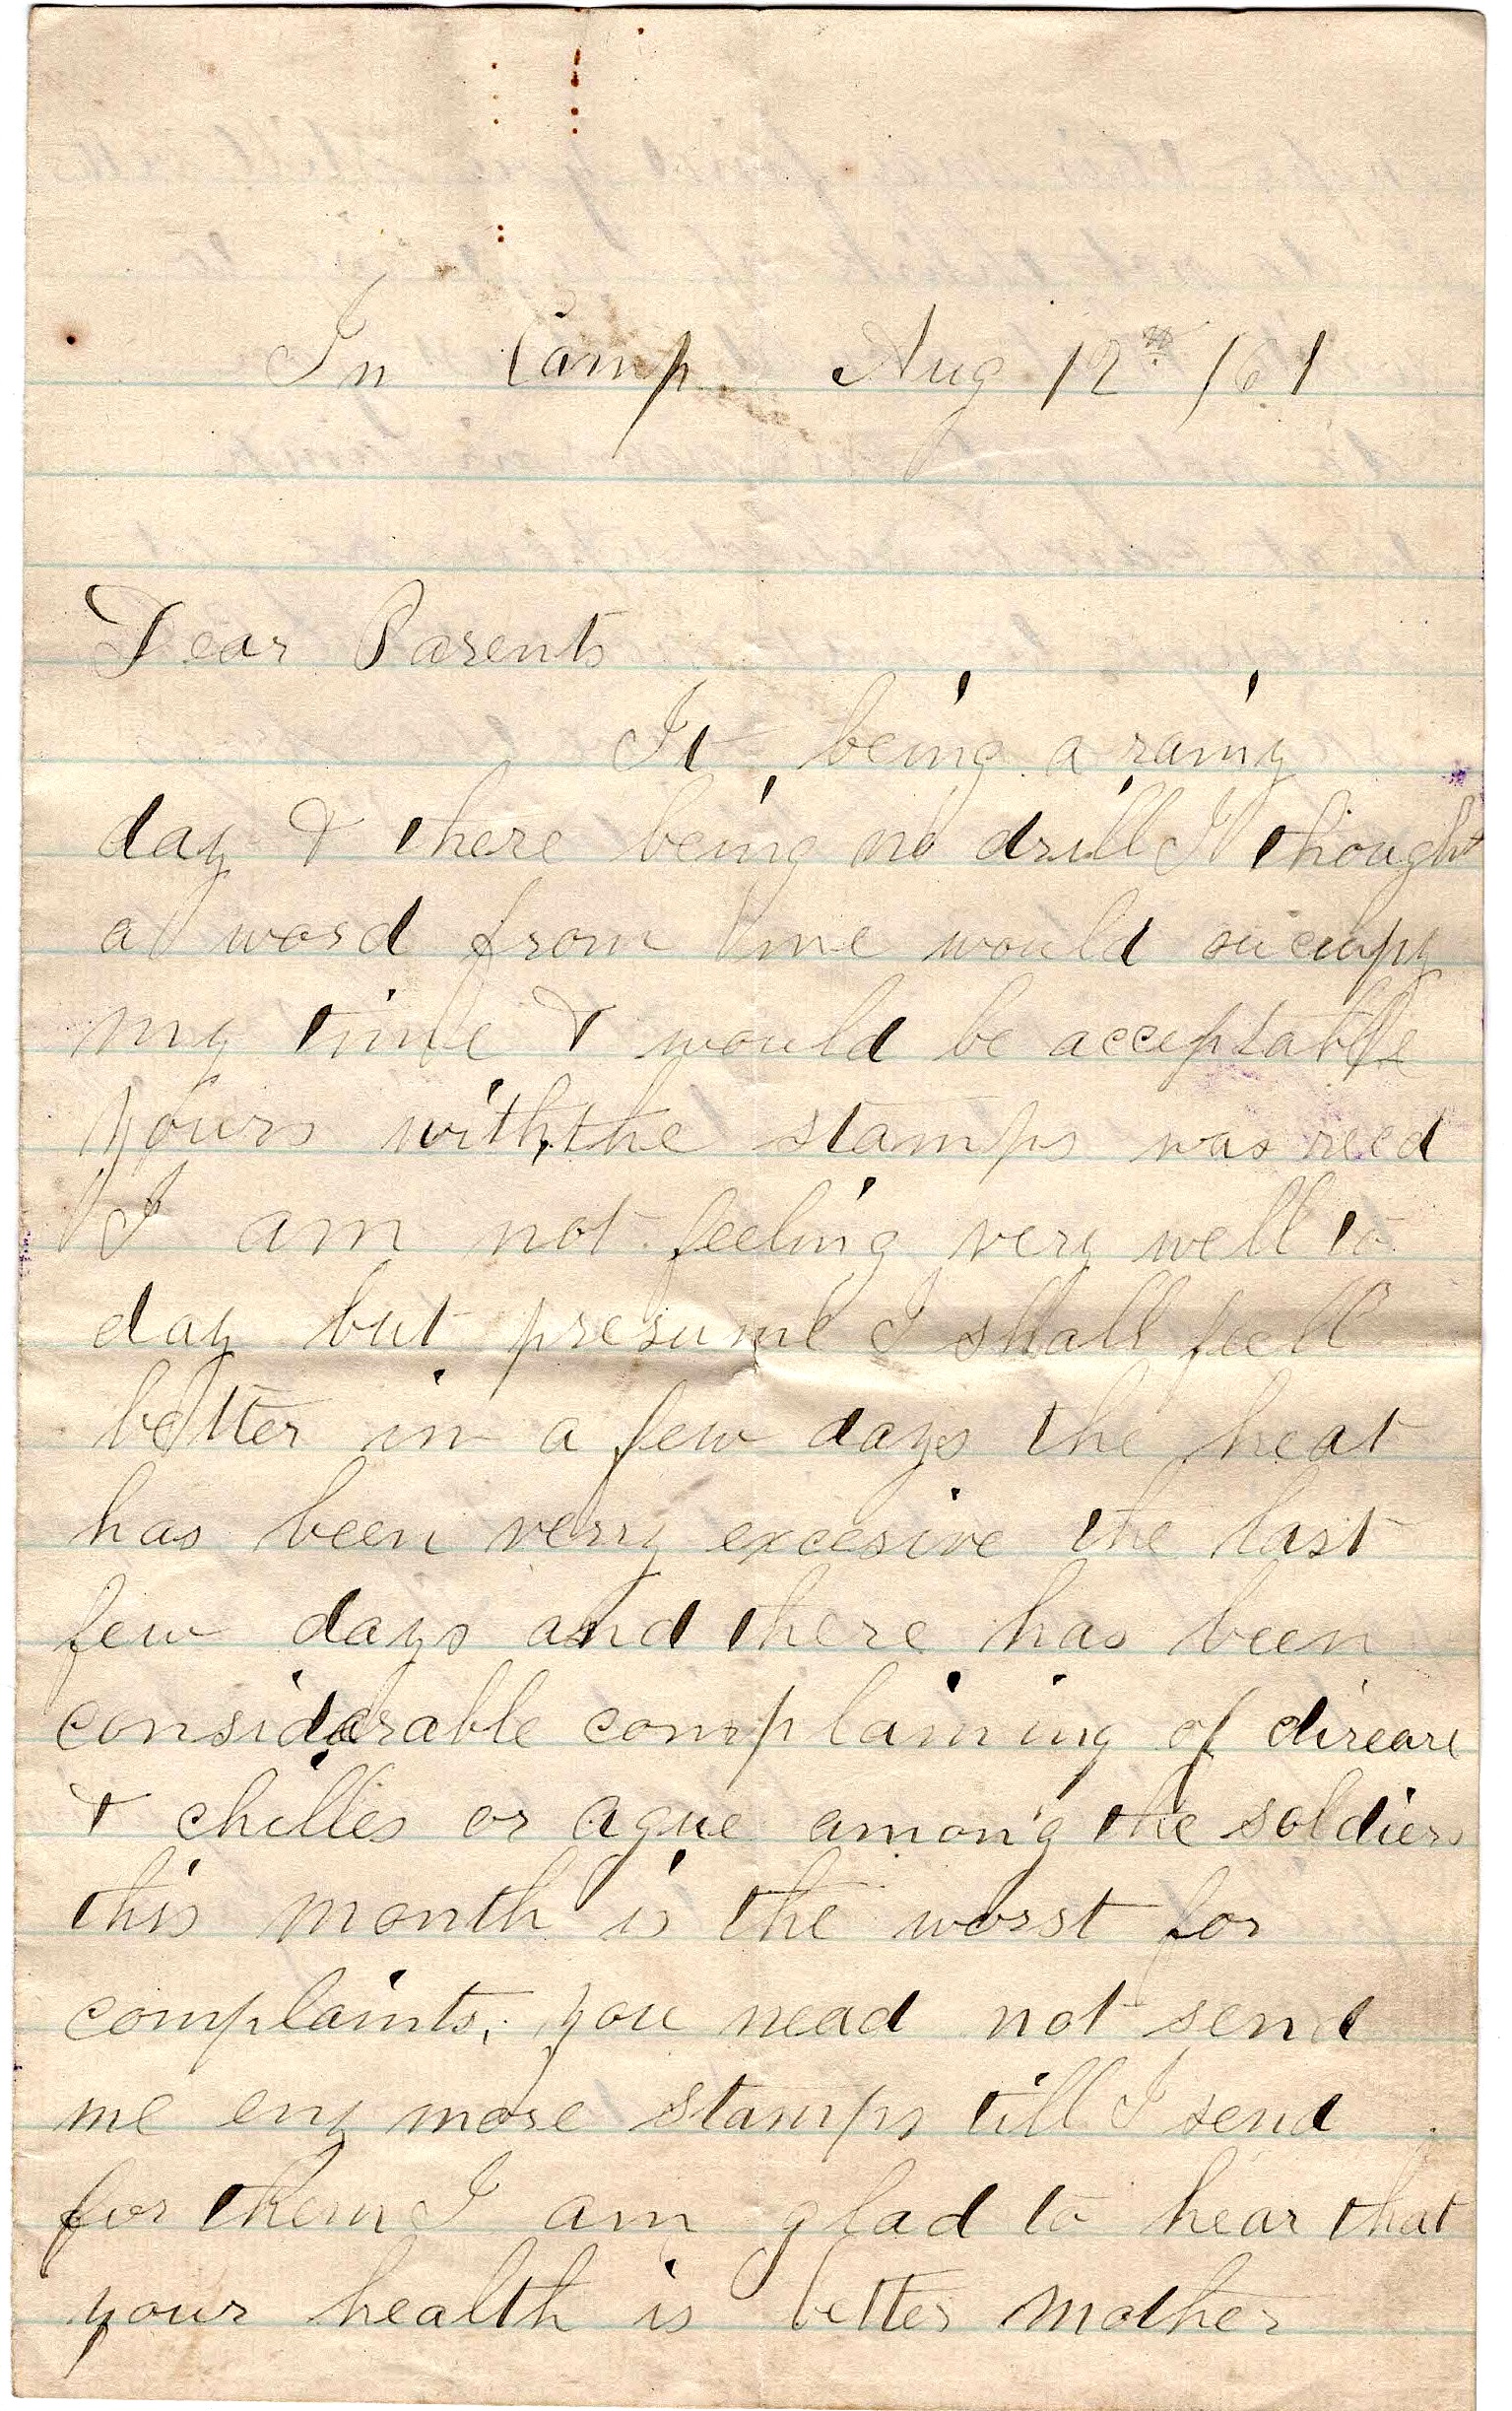 In Camp Aug 12th /61
Dear Parents
It being a rainy
day & there being no drill I thought
a word from me would ocempy
my time & would be acceptable
yours with the stamps was recd
I am not feeling very well to
day but presume I shall feell
better in a few days the heat
has been verry excesive the last
few days and there has been
considerable complaining of direare
& chilles or ague among the soldiers
this month is the worst for
complaints, you nead not send
me eny more stamps till I send
for them I am glad to hear that
your health is better mother